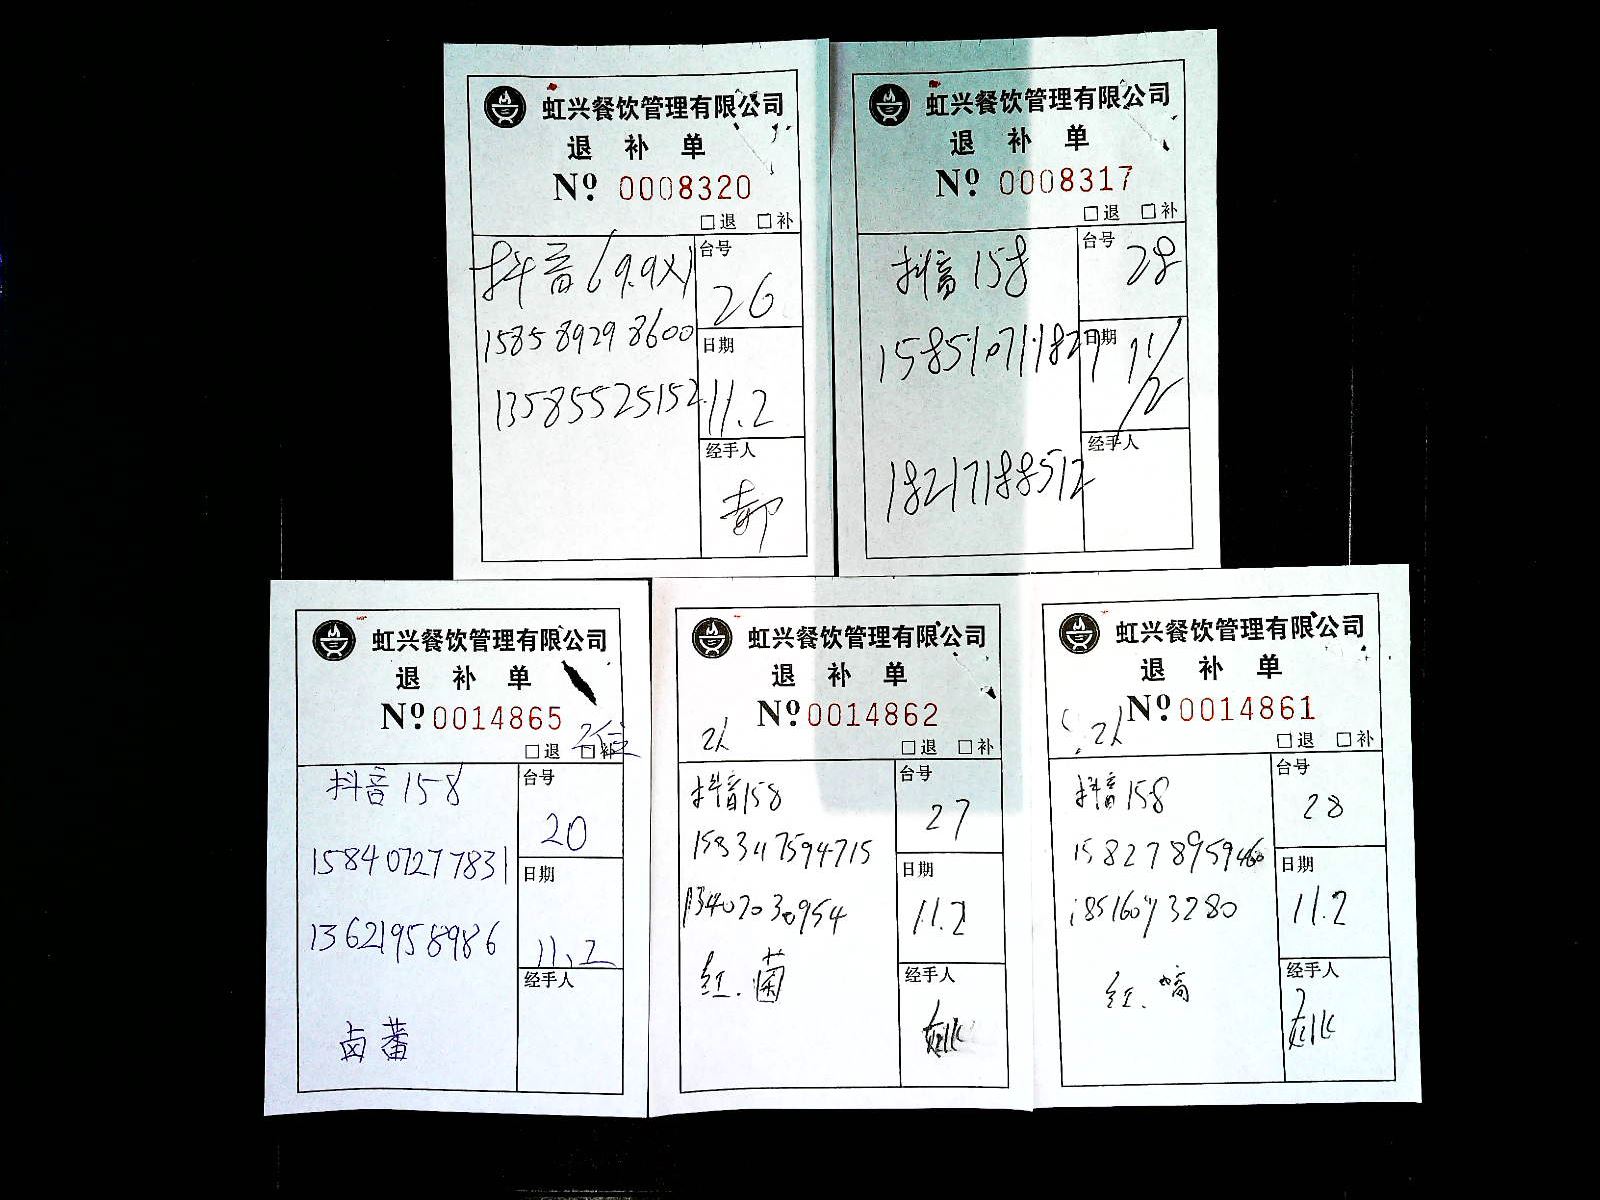 虹兴餐饮管理有限公司
退 补 单
No. 0008320
□退 □补
抖音169.9X1
台号
26
15858929 8600
日期
13585525152
11.2
经手人
郝
虹兴餐饮管理有限公司
退 补 单
No. 0008317
□退 □补
抖音158
台号
28
日期
11/2
18217188512
经手人
虹兴餐饮管理有限公司
退 补 单
No. 0014865
2位
□退 □补
抖音158
台号
20
158407277831
日期
13621958986
11.2
经手人
卤 蕃
虹兴餐饮管理有限公司
退 补 单
No. 0014862
2人
□退 □补
抖音158
台号
27
日期
13402030954
11.2
红.菌
经手人
姚
虹兴餐饮管理有限公司
退 补 单
No. 0014861
2人
□退 □补
抖音158
台号
28
日期
11.2
红.
经手人
姚